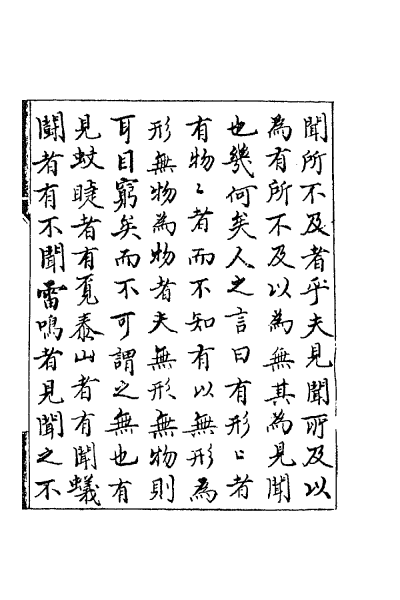 聞所不及者乎夫見聞所及以
為有所不及以為無其為見聞
也幾何矣人之言曰有形〻者
有物〻者而不知有以無形為
形無物為物者夫無形無物則
耳目窮矣而不可謂之無也有
見蚊睫者有覓泰山者有聞蟻
鬪者有不聞雷鳴者見聞之不